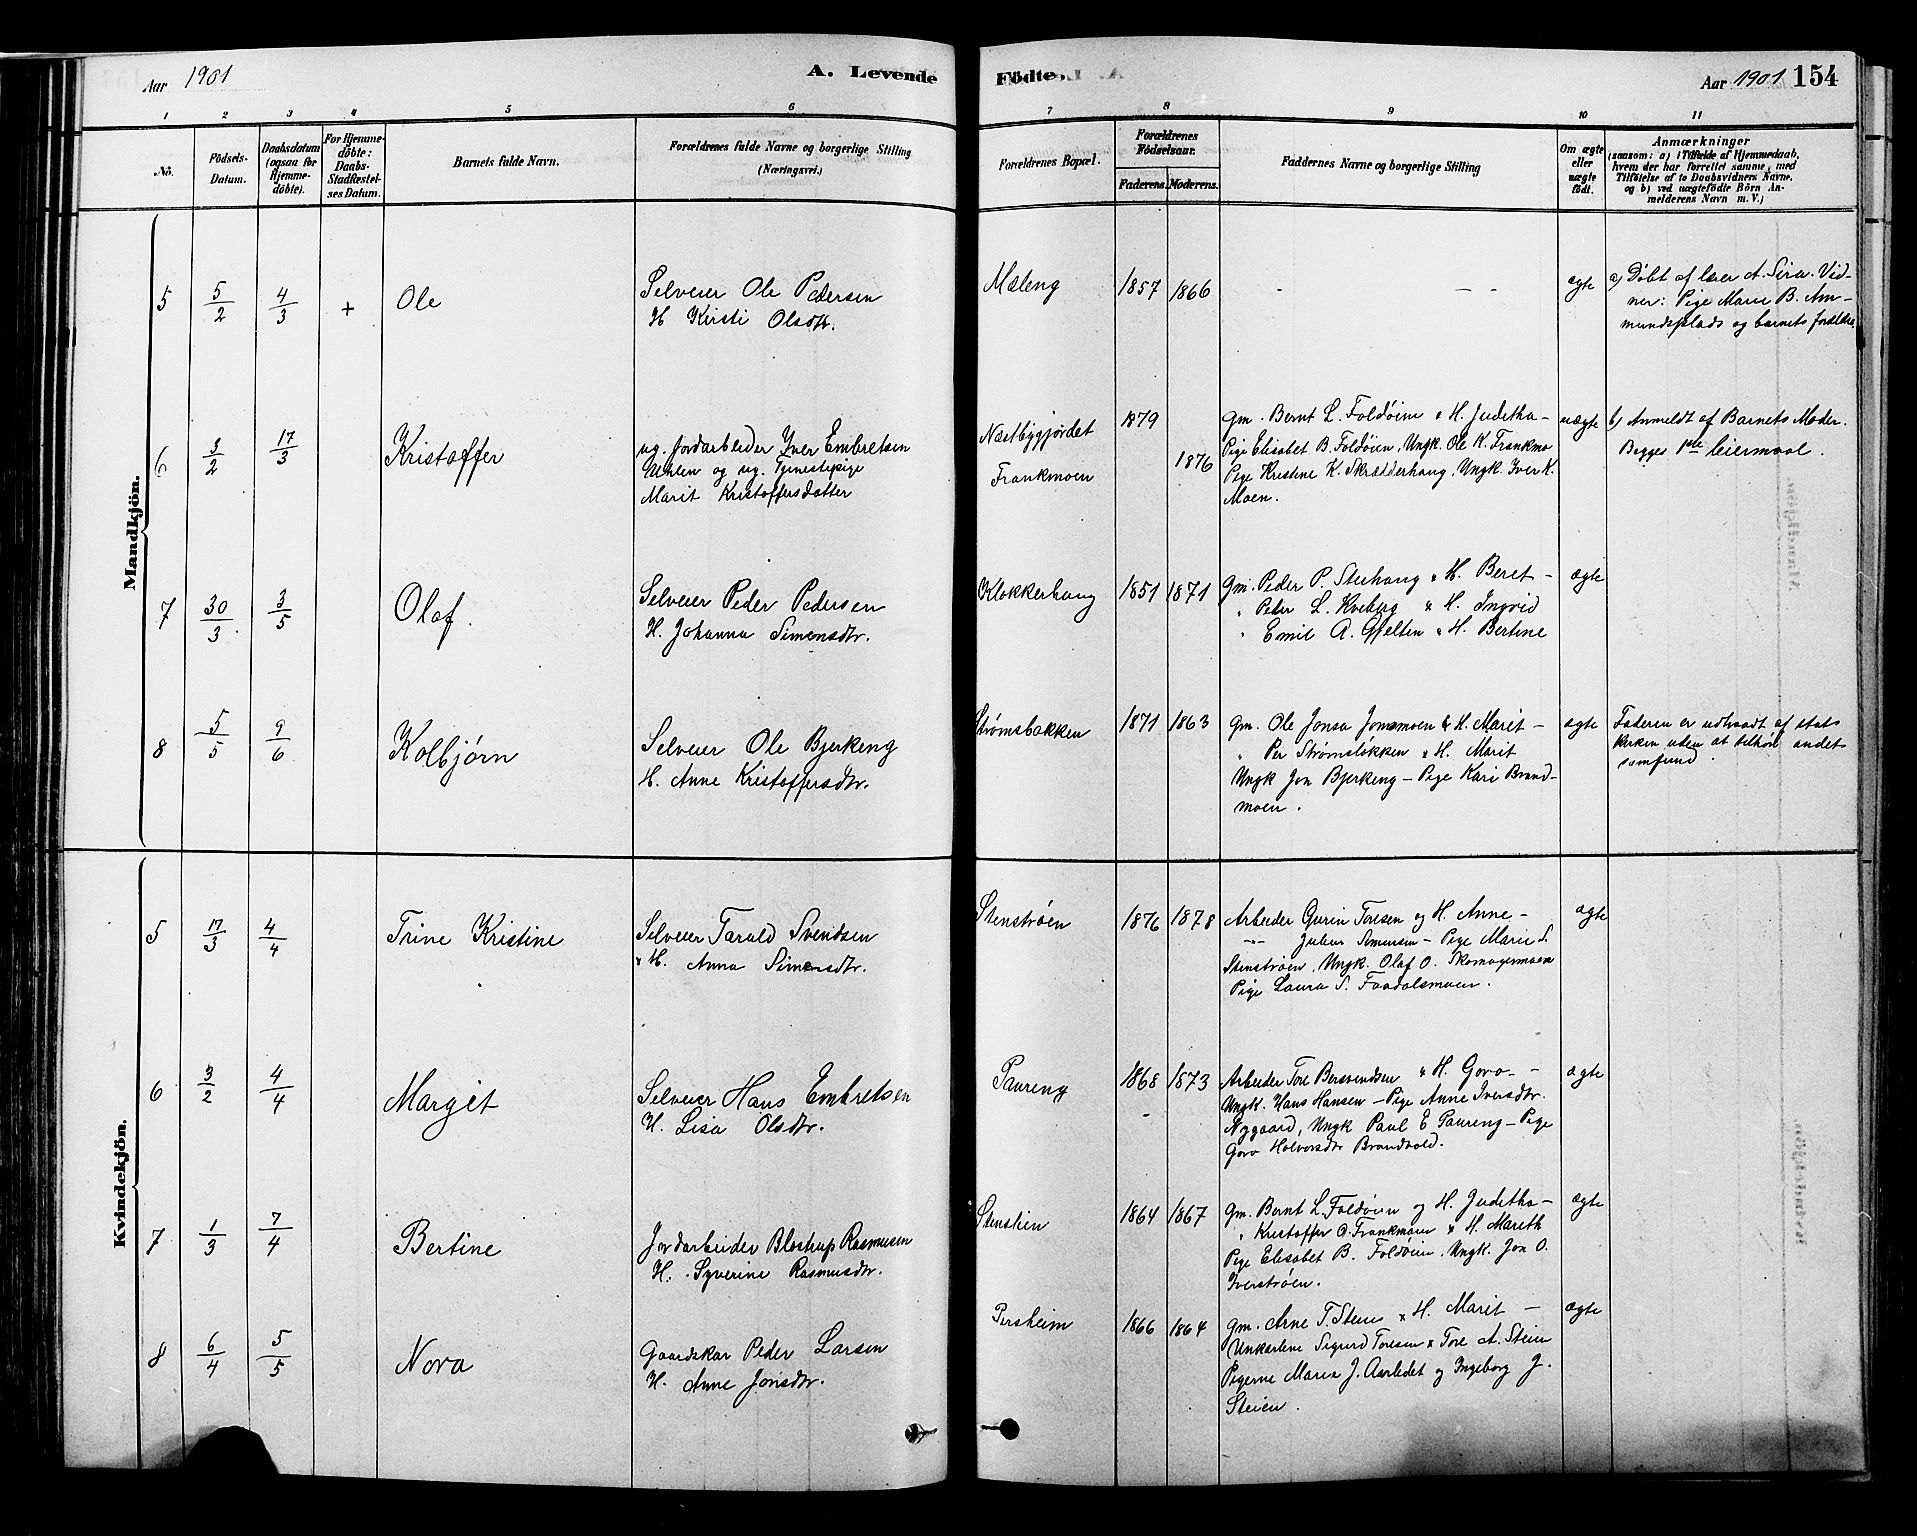 Aar 1901
A. Levende
Födte.
Aar 1901 154
1 2 3 4 5 6 7 8 9 10 11
No.
Födsels-
Datum.
Daabsdatum
(ogsaa for
Hjemme-
döbte).
For Hjemme-
döbte:
Daabs-
Stadfæstel-
ses Datum.
Barnets fulde Navn.
Forældrenes fulde Navne og borgerlige Stilling
(Næringsvei.)
Forældrenes Bopæl.
Forældrenes
Födselsaar.
Faderens. Moderens.
Faddernes Navne og borgerlige Stilling
Om ægte
eller
uægte
födt.
Anmærkninger
(saasom: a) i Tilfælde af Hjemmedaab,
hvem der har forrettet samme, med
Tilföielse af to Daabsvidners Navne.
og b) ved uægtefödte Börn An-
melderens Navn m. V.)
Mandkjön.
5 5/2 4/3 + Ole
Selveier Ole Pedersen
H Kirsti Olsdtr.
Mæleng 1857 1866 - - -
ægte
a) Døbt af lær A. Sira. Vid-
ner: Pige Marie B. Am-
mundsplads og barnets forældre.
6 3/2 17/3 Kristoffer
ug. Jordarbeider Iver Embretsen
og ug. Tjenestepige
Marit Kristoffersdatter
Næstbygjördet
Frankmoen
1879
1876
Gm. Bernt L. Foldøien & H. Juditha -
Pige Elisabet B. Foldøien, Ungk. Ole K. Frankmo
Pige Kristine K. Skrædderhaug, Ungk. Iver K.
Moen.
uægte
b) Anmeldt af Barnets Moder.
Begges 1ste leiermaal.
7 30/3 3/5 Olaf.
Selveier Peder Pedersen
H. Johanna Simensdtr.
Klokkerhaug 1851 1871
Gm. Peder P. Steihaug & H. Beret -
" Peder L. Kveberg & H. Ingrid
" Emil A. Gjelten & H. Bertine
ægte
8 5/5 9/6 Kolbjørn
Selveier Ole Bjerkeng
H. Anne Kristoffersdtr.
Strømsbakken 1871 1863
Gm. Ole Jonsa Jonsmoen & H. Marit -
" Per Strømsløkken & H. Marit
Ungk Jon Bjerkeng - Pige Kari Brand-
moen.
ægte
Faderen er udtraadt af stats
kirken uden at tilhøre andet
samfund.
Kvindekjön.
5 17/3 4/4 Trine Kristine
Selveier Tarald Svendsen
& H. Anna Simensdtr.
Stenstrøen 1876 1878
Arbeider Gurin Toresen og H. Anne -
-"- Julius Simensen - Pige Marie S.
Stenstrøen, Ungk. Olaf O. Skomagermoen
Pige Laura S. Faadalsmoen.
ægte
6 3/2 4/4 Margit
Selveier Hans Embretsen
H. Lisa Olsdtr.
Paureng 1868 1873
Arbeider Tore Bersvendsen & H. Goro -
Ungk. Hans Hansen - Pige Anne Iversdtr.
Nygaard, Ungk Paul E Paureng - Pige
Goro Halvorsdtr Brandvold.
ægte
7 1/3 7/4 Bertine
Jordarbeider Blostrup Rasmusen
H. Syverine Rasmusdtr.
Stenslien 1864 1867
Gm. Bernt L. Foldøien og H. Juditha -
" Kristoffer O. Frankmoen & H. Marith
Pige Elisabet B. Foldøien, Ungk. Jon O.
Iverstrøen.
ægte
8 6/4 5/5 Nora
Gaardskar Peder Larsen
H. Anne Jonsdtr.
Persheim 1866 1864
Gm. Arne T. Steien & H. Marit -
Unkarlene Sigurd Toresen & Tore A. Steien
Pigerne Maren J. Aarledet og Ingeborg J.
Steien.
ægte